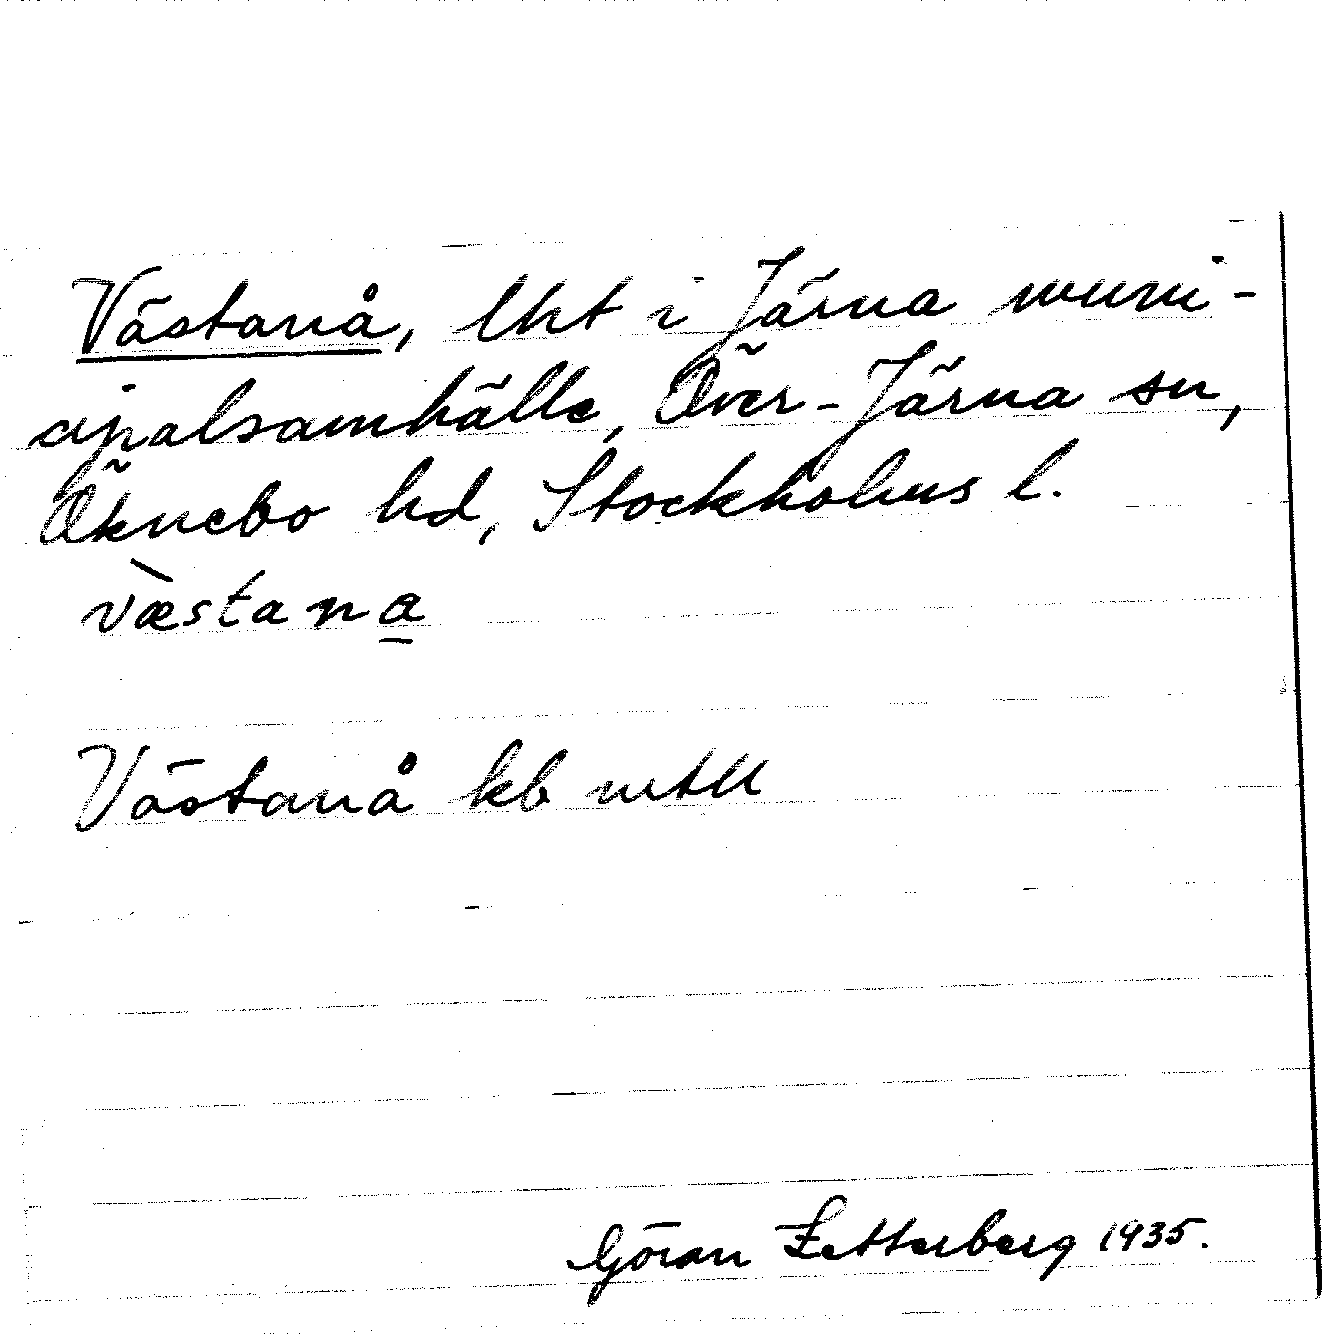 Västanå, lht i Järna muni-
cipalsamhälle, Över-Järna sn,
Öknebo hd, Stockholms l.
væ̀stana̲
Västanå kb mtll
Göran Zetterberg 1935.